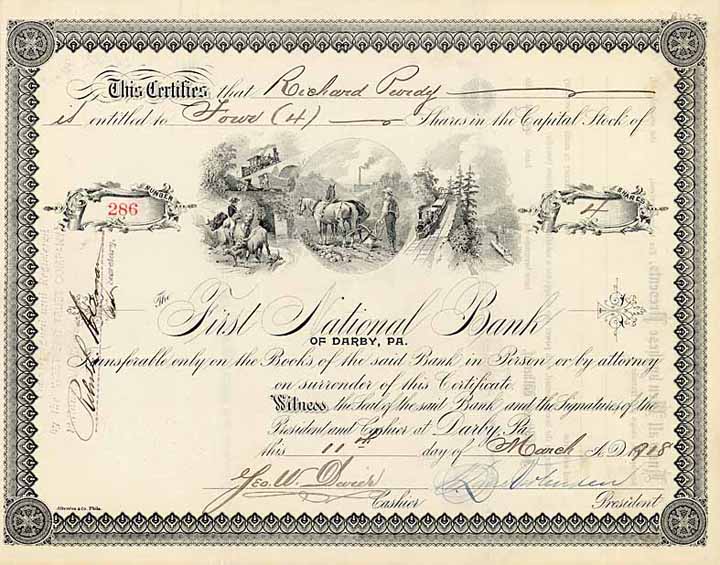 This Certifies that Richard Purdy
is entitled to Four (4) Shares in the Capital Stock of
NUMBER
286
SHARES
4
The
First National Bank
OF DARBY, PA.
Transferable only on the Books of the said Bank in Person or by attorney
on surrender of this Certificate.
Witness the Seal of the said Bank and the Signatures of the
President and Cashier at Darby, Pa.
this 11th day of March A.D. 1918
Geo. W. Dwier
Cashier
President
Secretary.